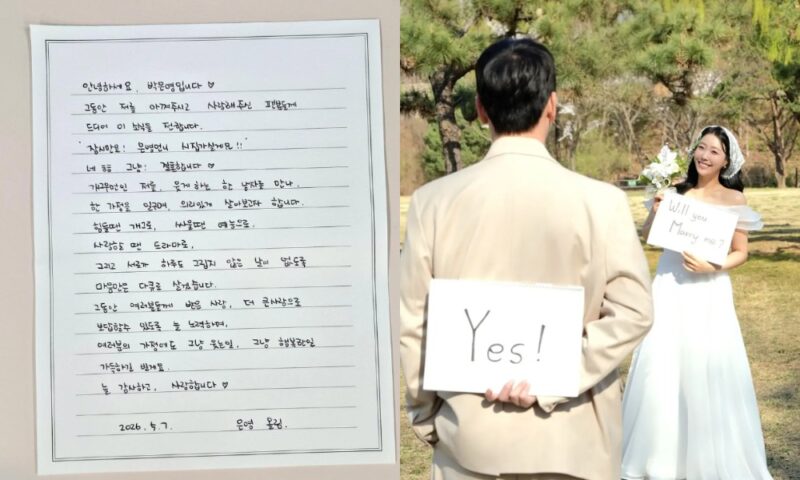 안녕하세요, 박은영입니다 ♡
그동안 저를 아껴주시고 사랑해주신 팬분들께
드디어 이 소식을 전합니다.
"잠시만요! 은영언니 시집가실게요!!"
네 그냥! 결혼합니다 ♡
개그우먼인 저를, 웃게 하는 한 남자를 만나
한 가정을 일구며, 의리있게 살아보려 합니다.
힘들땐 개그로, 싸울땐 예능으로
사랑할 땐 드라마로,
그리고 서로가 하루도 그립지 않은 날이 없도록
마음만은 다큐로 살겠습니다.
그동안 여러분들께 받은 사랑, 더 큰사랑으로
보답할수 있도록 늘 노력하며,
여러분의 가정에도 그냥 웃는일, 그냥 행복한일
가득하길 빌게요.
늘 감사하고, 사랑합니다 ♡
2026. 5. 7. 은영 올림.
Will you
Marry me?
Yes!